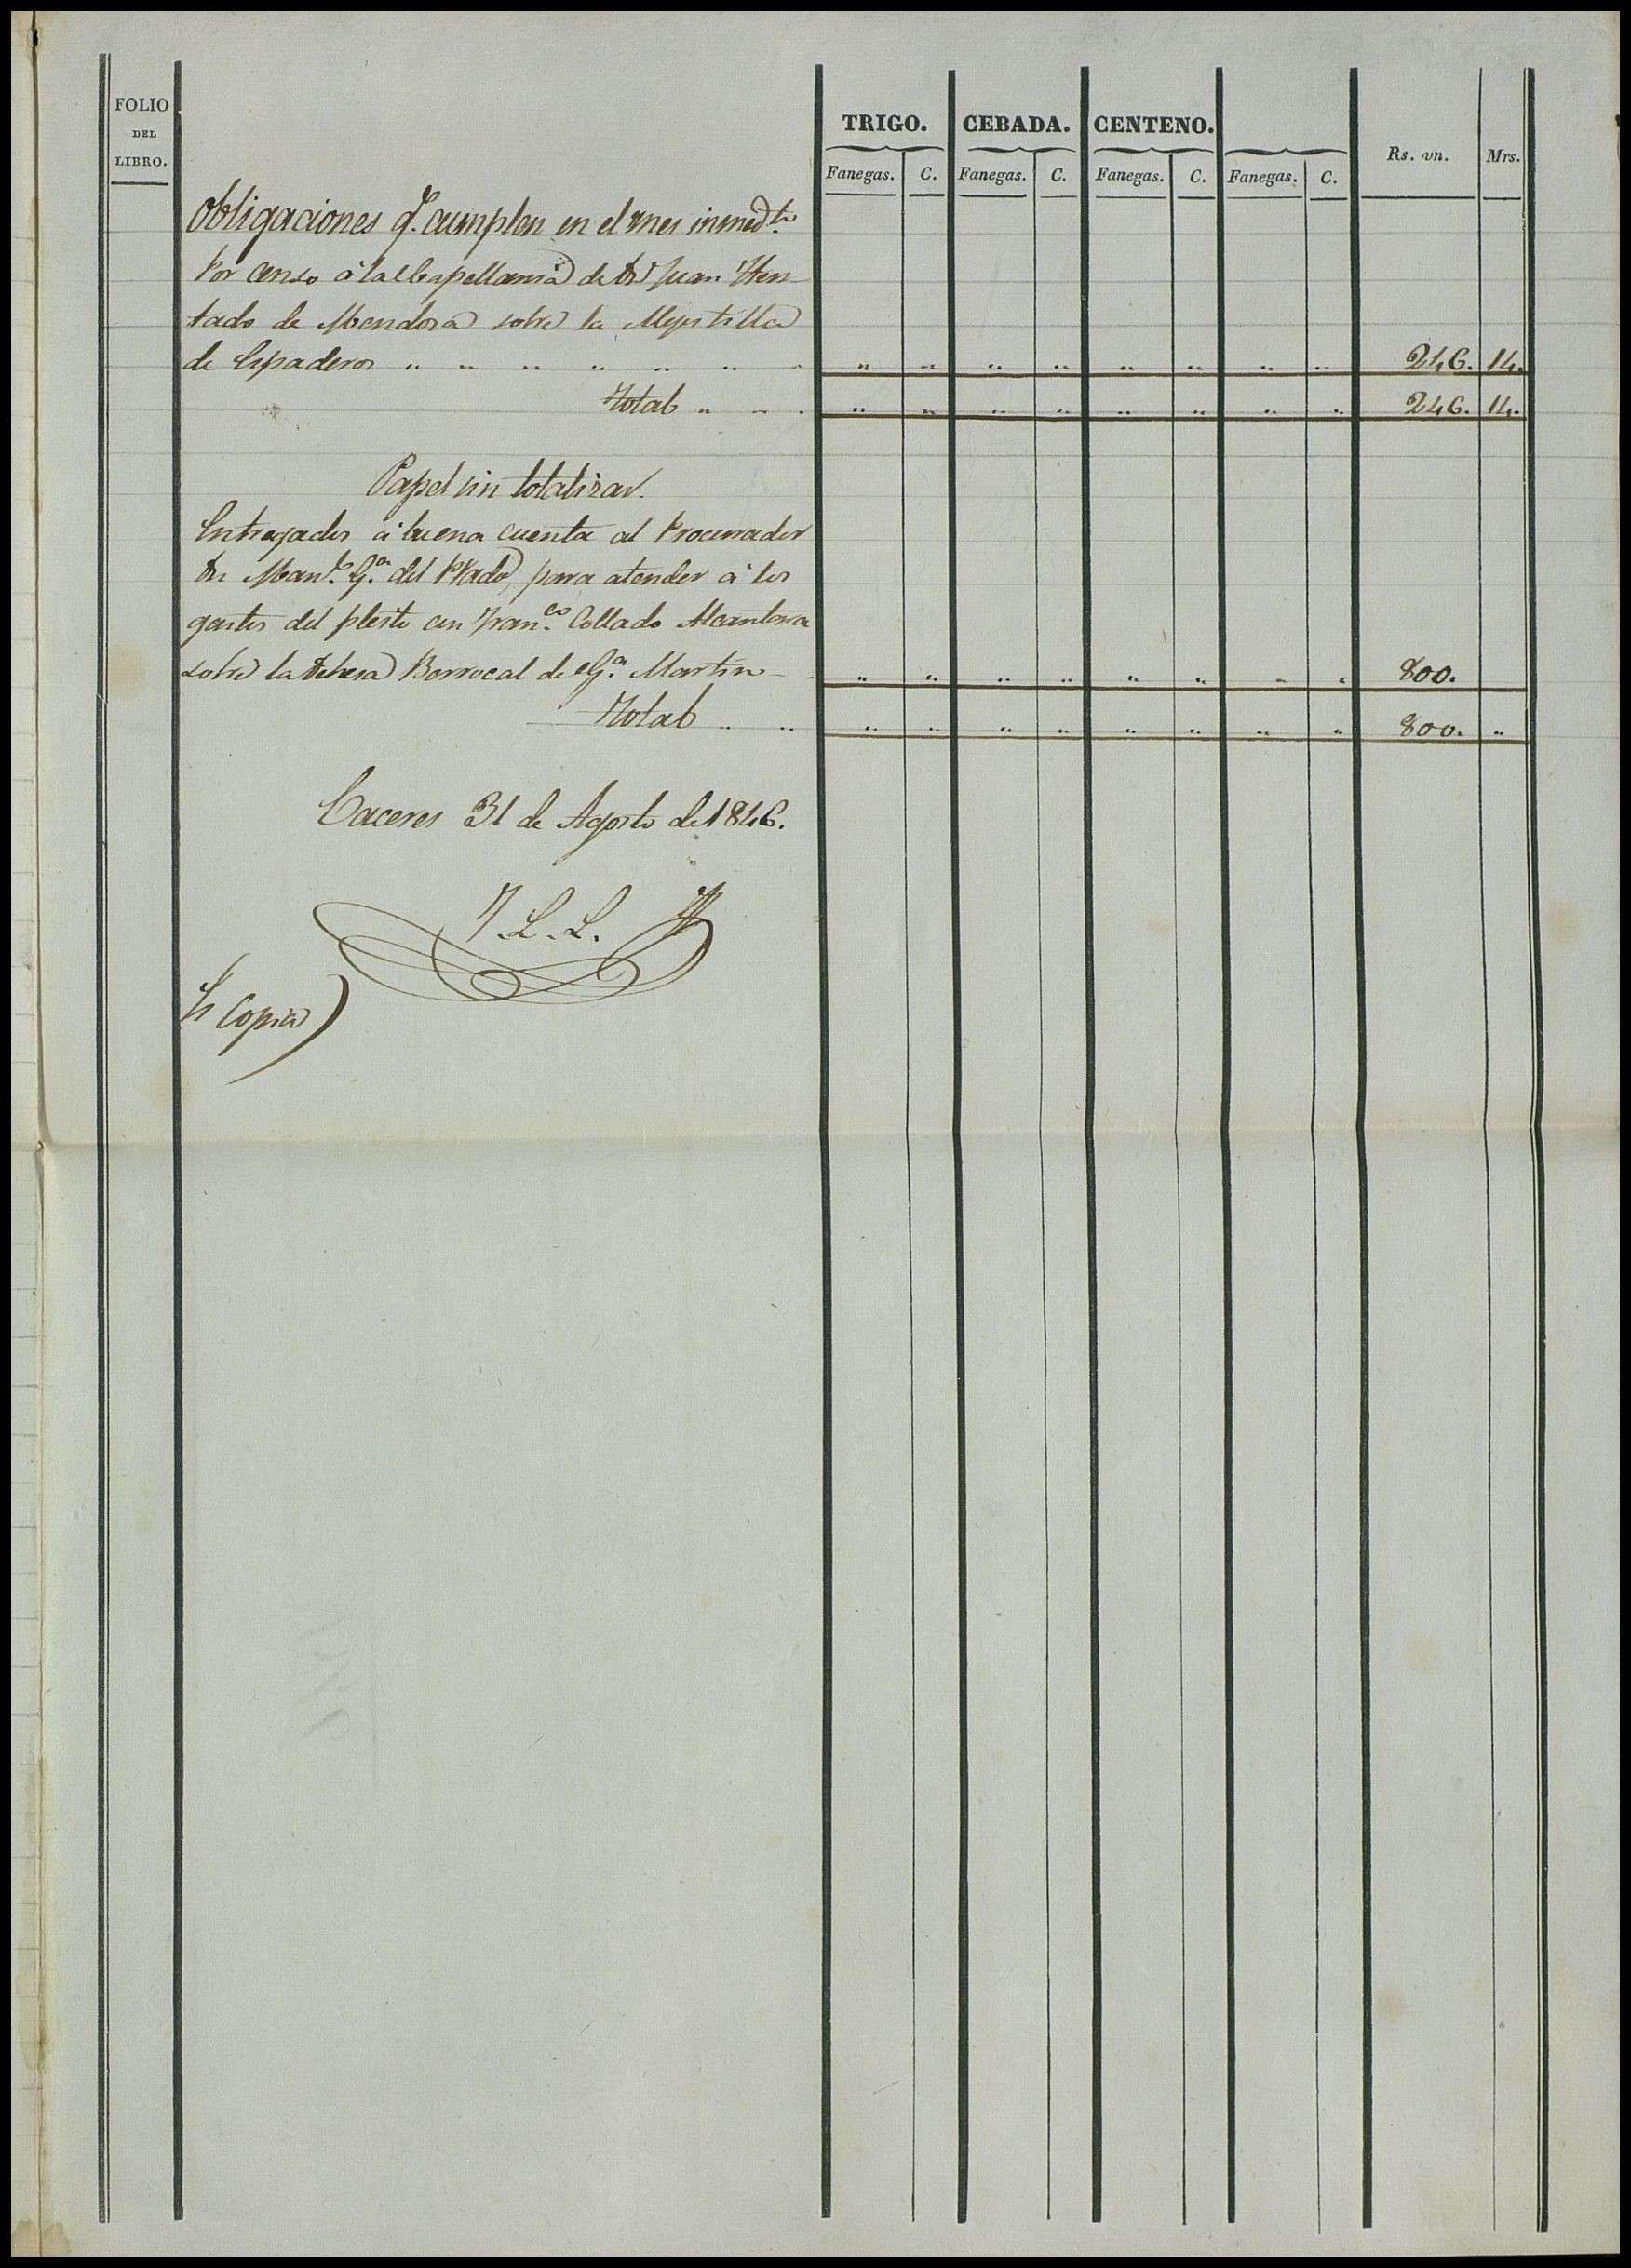 FOLIO
DEL
LIBRO.
TRIGO. CEBADA. CENTENO.
Fanegas. C. Fanegas. C. Fanegas. C. Fanegas. C. Rs. vn. Mrs.
Obligaciones q.e cumplen en el mes inmed.to
Por censo á la Capellania de Dn Juan
tado de Mendoza sobre la Mejostilla
de Espaderos " " " " " " " " " " " " " " 246. 14.
Total " " " " " " " " " " 246. 14.
Papel sin totalizar.
Entregados á buena cuenta al Procurador
Dn Man.l G.a del Prado, para atender á los
gastos del pleito con Fran.co Collado Alcantara
sobre la Dehesa Borrocal de G.a Martin " " " " " " " " 800.
Total " " " " " " " " " " 800. "
Caceres 31 de Agosto de 1846.
L. L.
Es Copia